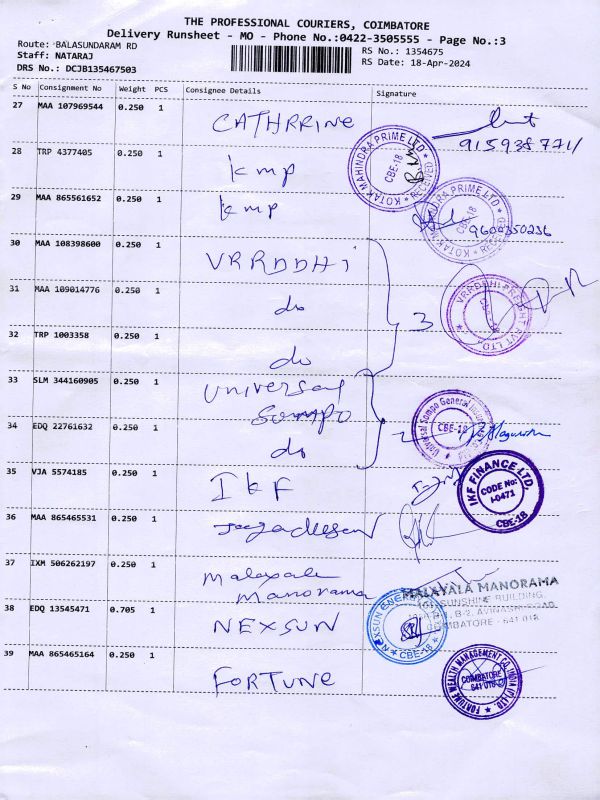 THE PROFESSIONAL COURIERS, COIMBATORE
Delivery Runsheet - MO - Phone No.:0422-3505555 - Page No.:3
Route: BALASUNDARAM RD
Staff: NATARAJ
DRS No.: DCJB135467503
RS No.: 1354675
RS Date: 18-Apr-2024
S No Consignment No Weight PCS Consignee Details Signature
27 MAA 107969544 0.250 1 CATHRRINE
915938771/
28 TRP 4377405 0.250 1 kmp
KOTAK MAHINDRA PRIME LTD
RECEIVED
CBE-18
29 MAA 865561652 0.250 1 kmp
KOTAK MAHINDRA PRIME LTD
RECEIVED
CBE-18
9600350236
30 MAA 108398600 0.250 1 VRRDDHI
31 MAA 109014776 0.250 1 do
3
VRRDDHI FREIGHT PVT LTD
32 TRP 1003358 0.250 1 do
33 SLM 344160905 0.250 1 Universal Sompo
34 EDQ 22761632 0.250 1 do
2
Universal Sompo General
CBE-18
35 VJA 5574185 0.250 1 IKF
IKF FINANCE LTD.
CODE No:
I-0471
CBE-18
36 MAA 865465531 0.250 1 Jagadeesan
37 IXM 506262197 0.250 1 Malayala Manorama
MALAYALA MANORAMA
SUNSHINE BUILDING,
B-2, AVINASHI ROAD
COIMBATORE - 641 018
38 EDQ 13545471 0.705 1 NEXSUN
NEXSUN
CBE-18
39 MAA 865465164 0.250 1 FORTUNE
FORTUNE WEALTH MANAGEMENT CO. INDIA (P) LTD.
COIMBATORE
641 018